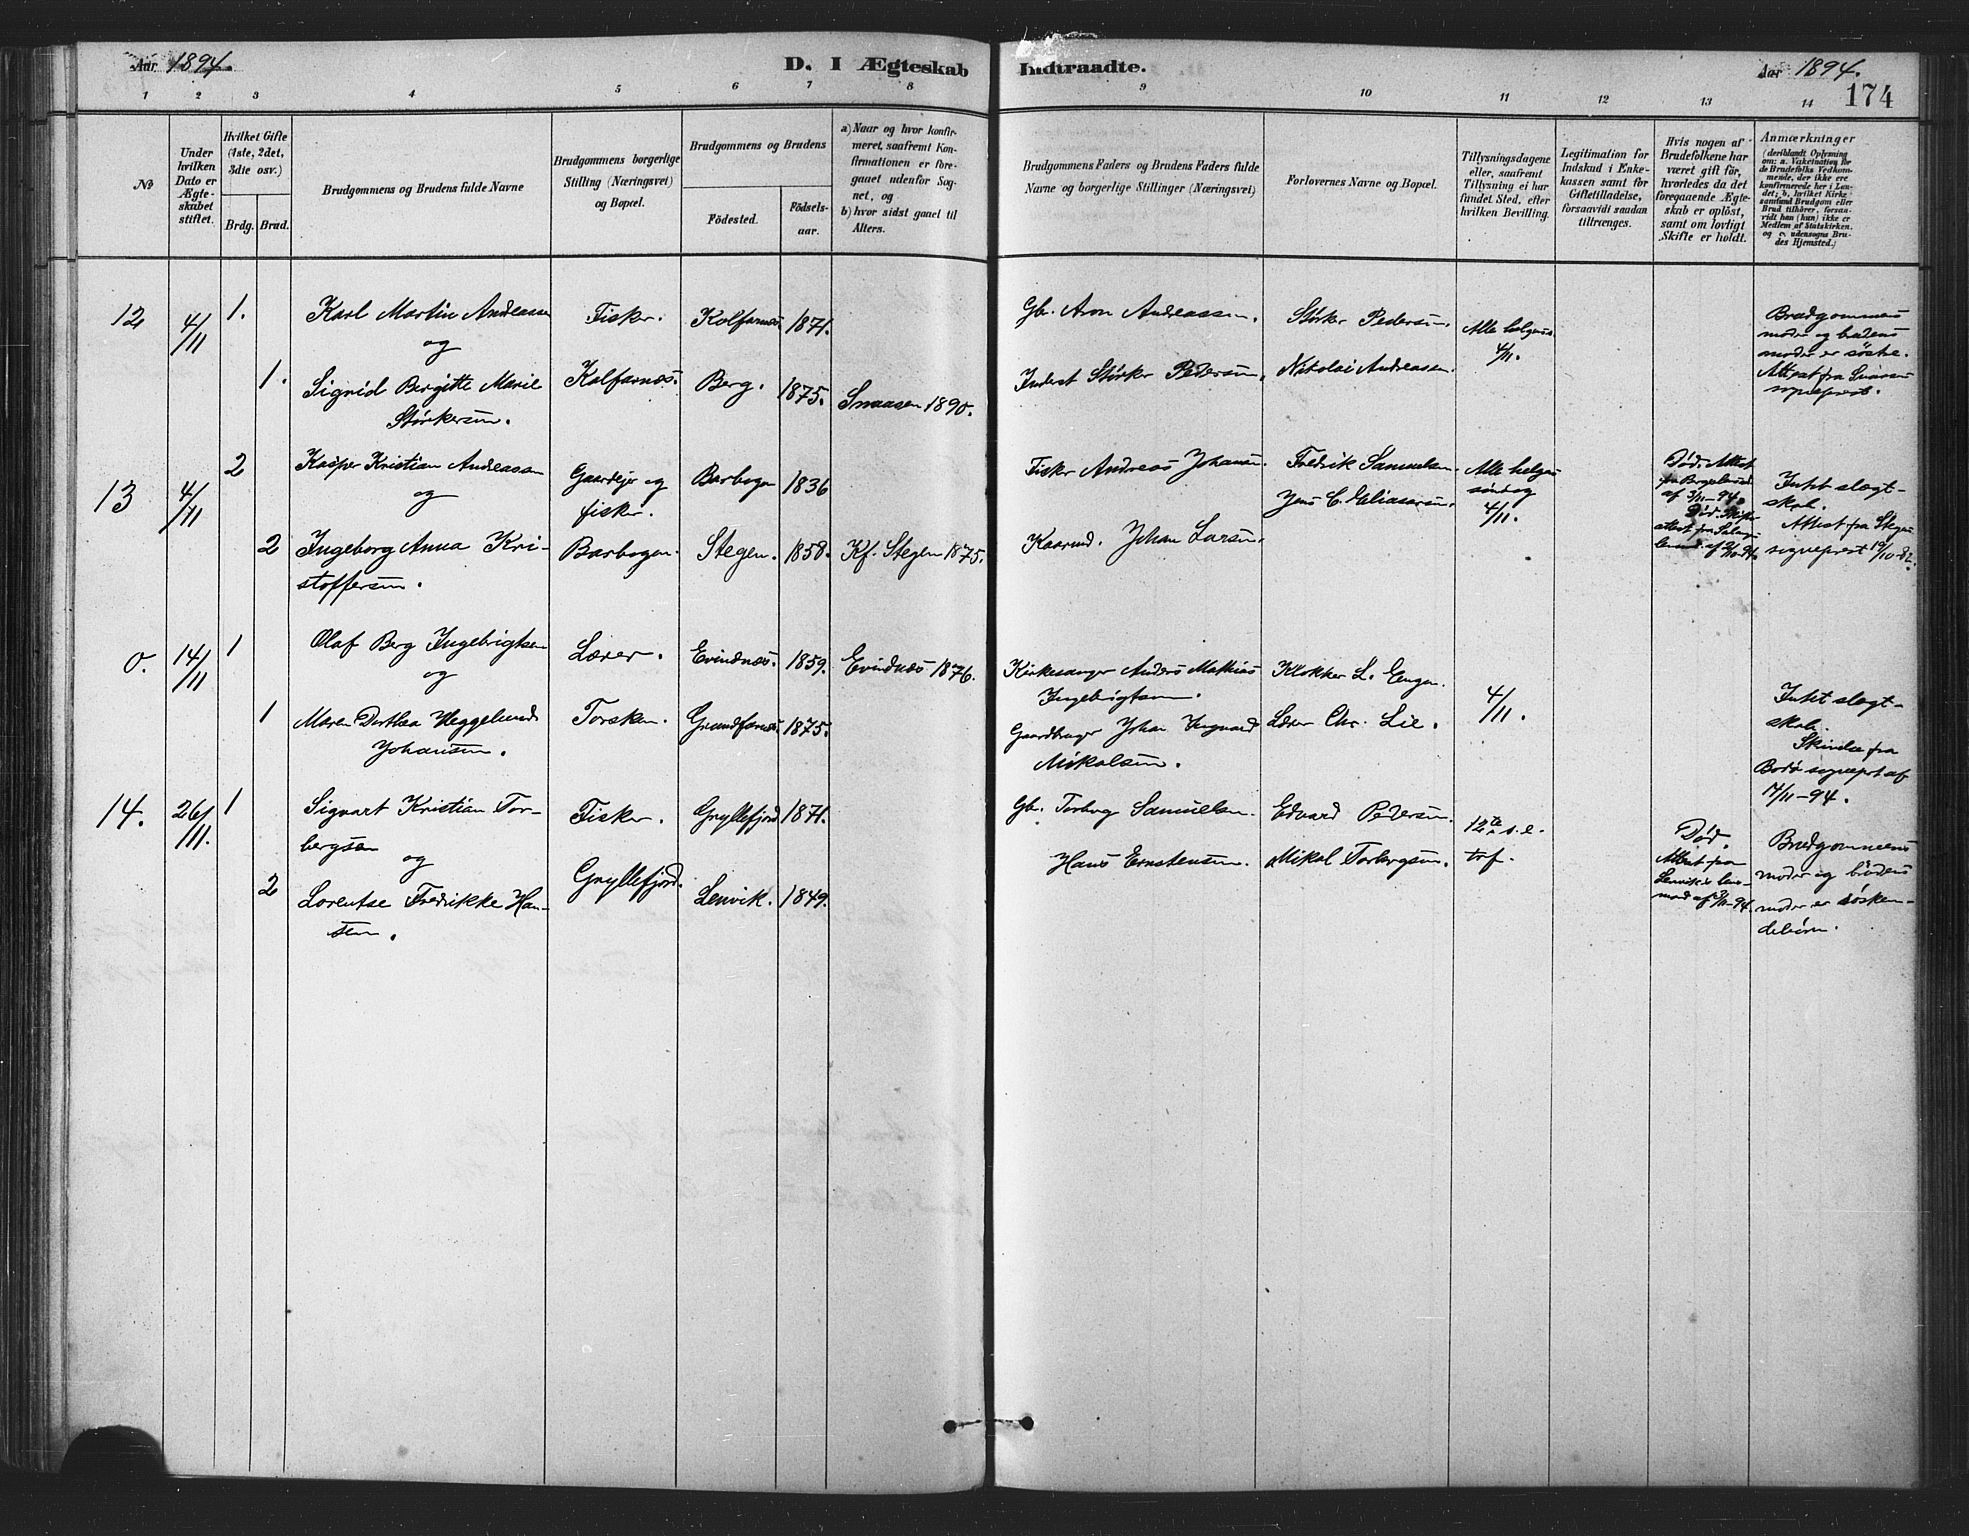 Aar 1894.
D. I Ægteskab Indtraadte.
Aar 1894.
174
1 2 3 4 5 6 7 8 9 10 11 12 13 14
№
Under hvilken Dato er Ægteskabet stiftet.
Hvilket Gifte (1ste, 2det, 3die osv.)
Brdg. Brud.
Brudgommens og Brudens fulde Navne
Brudgommens borgerlige Stilling (Næringsvei) og Bopæl.
Brudgommens og Brudens
Födested.
Födselsaar.
a) Naar og hvor konfirmeret, saafremt Konfirmationen er foregaaet udenfor Sognet, og
b) hvor sidst gaaet til Alters.
Brudgommens Faders og Brudens Faders fulde Navne og borgerlige Stillinger (Næringsvei)
Forlovernes Navne og Bopæl.
Tillysningsdagene eller, saafremt Tillysning ei har fundet Sted, efter hvilken Bevilling.
Legitimation for Indskud i Enkekassen samt for Giftetilladelse, forsaavidt saadan tiltrænges.
Hvis nogen af Brudefolkene har været gift för, hvorledes da det foregaaende Ægteskab er oplöst, samt om lovligt Skifte er holdt.
Anmærkninger
(deriblandt Oplysning om: a. Vakcination for de Brudefolks Vedkommende, der ikke ere konfirmerede her i Landet; b. hvilket Kirkesamfund Brudgom eller Brud tilhörer, forsaavidt han (hun) ikke er Medlem af Statskirken, og c. udensogns Brudes Hjemsted.)
12 4/11 1. Karl Martin Andreassen Fisker. Kolfarnes 1871. Gb. Aron Andreassen. Størker Pedersen. Alle helgens 4/11.
og
1. Sigrid Bergitte Marie Størkersen. Kolfarnes. Berg. 1875. Snaasen 1890. Inderst Størker Pedersen. Nikolai Andreassen.
Brudgommens moder og brudens moder er søstre. Attest fra sogneprest.
13 4/11 2 Kasper Kristian Andreassen Gaardejer og fisker. Barbogen 1836 Fisker Andreas Johansen. Fredrik Samuelsen Alle helgens søndag 4/11.
og
Jens C. Eliasersen.
Død. Attest fra lensmd. af 3/11-94.
Intet slægtskab.
2 Ingeborg Anna Kristoffersen. Barbogen. Stegen. 1858. Kf. Stegen 1875. Kaarmd. Johan Larsen.
Død. Skifteattest fra
Attest fra Stegen sogneprest 19/10-82.
0. 14/11 1 Olaf Berg Ingebrigtsen Lærer. Evindnes. 1859. Evindnes 1876. Kirkesanger Anders Mathias Ingebrigtsen. Klokker L. Engen. 4/11.
og
1 Maren Dorthea Heggelund Johansen. Torsken. Grundfarnes. 1875. Gaardbruger Johan Ingvard Mikalsen. Lærer Chr. Lie.
Intet slægtskab. Skinde fra Bodø sogneprst af 17/11-94.
14. 26/11. 1 Sigvart Kristian Torbergsen Fisker. Gryllefjord 1871. Gb. Torberg Samuelsen. Edvard Pedersen. 12te s. e. tref.
og
2 Lorentse Fredrikke Hansen. Gryllefjord. Lenvik. 1849. Hans Ernstensen. Mikal Torbergsen.
Død. Attest fra Lenviks lensmand af /11-94.
Brudgommens moder og brudens moder er søskendebørn.